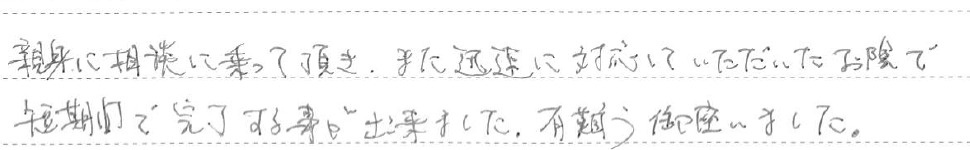 親身に相談に乗って頂き、また迅速に対応していただいたお陰で
短期間で完了する事が出来ました。有難う御座いました。